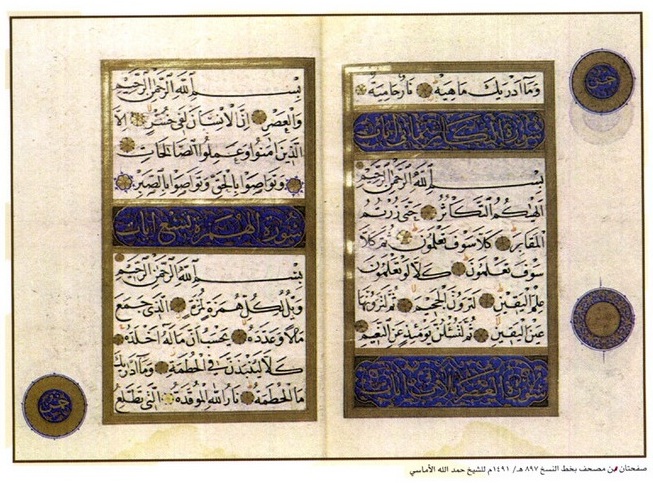 وَمَا أَدْرٰيكَ مَاهِيَهْ نَارٌ حَامِيَةٌ
خمس
سورة التكاثر ثماني آيات
بِسْمِ اللهِ الرَّحْمٰنِ الرَّحِيمِ
أَلْهٰيكُمُ التَّكَاثُرُ حَتّٰى زُرْتُمُ
الْمَقَابِرَ كَلَّا سَوْفَ تَعْلَمُونَ ثُمَّ كَلَّا
سَوْفَ تَعْلَمُونَ كَلَّا لَوْ تَعْلَمُونَ
عِلْمَ الْيَقِينِ لَتَرَوُنَّ الْجَحِيمَ ثُمَّ لَتَرَوُنَّهَا
عَيْنَ الْيَقِينِ ثُمَّ لَتُسْئَلُنَّ يَوْمَئِذٍ عَنِ النَّعِيمِ
سورة العصر ثلاث آيات
بِسْمِ اللهِ الرَّحْمٰنِ الرَّحِيمِ
وَالْعَصْرِ إِنَّ الْإِنْسَانَ لَفِي خُسْرٍ إِلَّا
الَّذِينَ آمَنُوا وَعَمِلُوا الصَّالِحَاتِ
وَتَوَاصَوْا بِالْحَقِّ وَتَوَاصَوْا بِالصَّبْرِ
سورة الهمزة تسع آيات
بِسْمِ اللهِ الرَّحْمٰنِ الرَّحِيمِ
وَيْلٌ لِكُلِّ هُمَزَةٍ لُمَزَةٍ الَّذِي جَمَعَ
مَالًا وَعَدَّدَهُ يَحْسَبُ أَنَّ مَالَهُ أَخْلَدَهُ
كَلَّا لَيُنْبَذَنَّ فِي الْحُطَمَةِ وَمَا أَدْرٰيكَ
مَا الْحُطَمَةُ نَارُ اللهِ الْمُوقَدَةُ الَّتِي تَطَّلِعُ
خمس
صفحتان من مصحف بخط النسخ ٨٩٧ هـ/ ١٤٩١م للشيخ حمد الله الأماسي